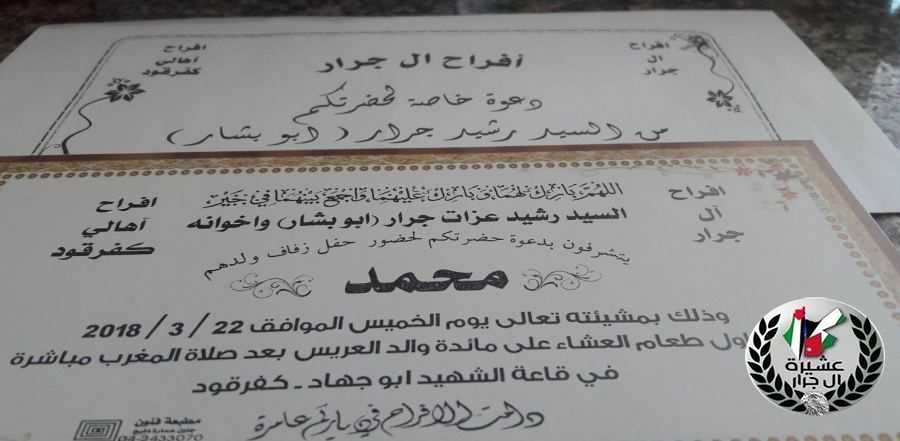 افراح
ال
جرار
أفراح ال جرار
افراح
أهالي
كفرقود
دعوة خاصة لحضرتكم
من السيد رشيد جرار (ابو بشار)
افراح
آل
جرار
اللهم بارك لهما وبارك عليهما واجمع بينهما في خير
افراح
أهالي
كفرقود
السيد رشيد عزات جرار (ابو بشار) واخوانه
يتشرفون بدعوة حضرتكم لحضور حفل زفاف ولدهم
محمد
وذلك بمشيئته تعالى يوم الخميس الموافق 22 / 3 / 2018
طعام العشاء على مائدة والد العريس بعد صلاة المغرب مباشرة
في قاعة الشهيد ابو جهاد - كفرقود
دامت الافراح في دياركم عامرة
مطبعة فنون
04-2433070
عشيرة
ال جرار